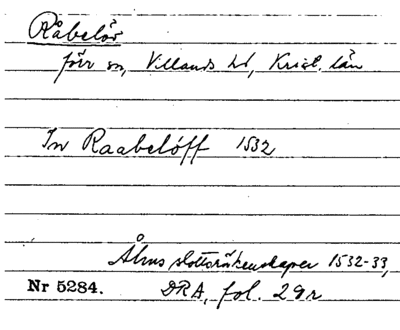 Råbelöv
förr sn, Villands hd, Krist. län
In Raabelöff 1532
Åhus slottsräkenskaper 1532-33,
Nr 5284. DRA, fol. 29r